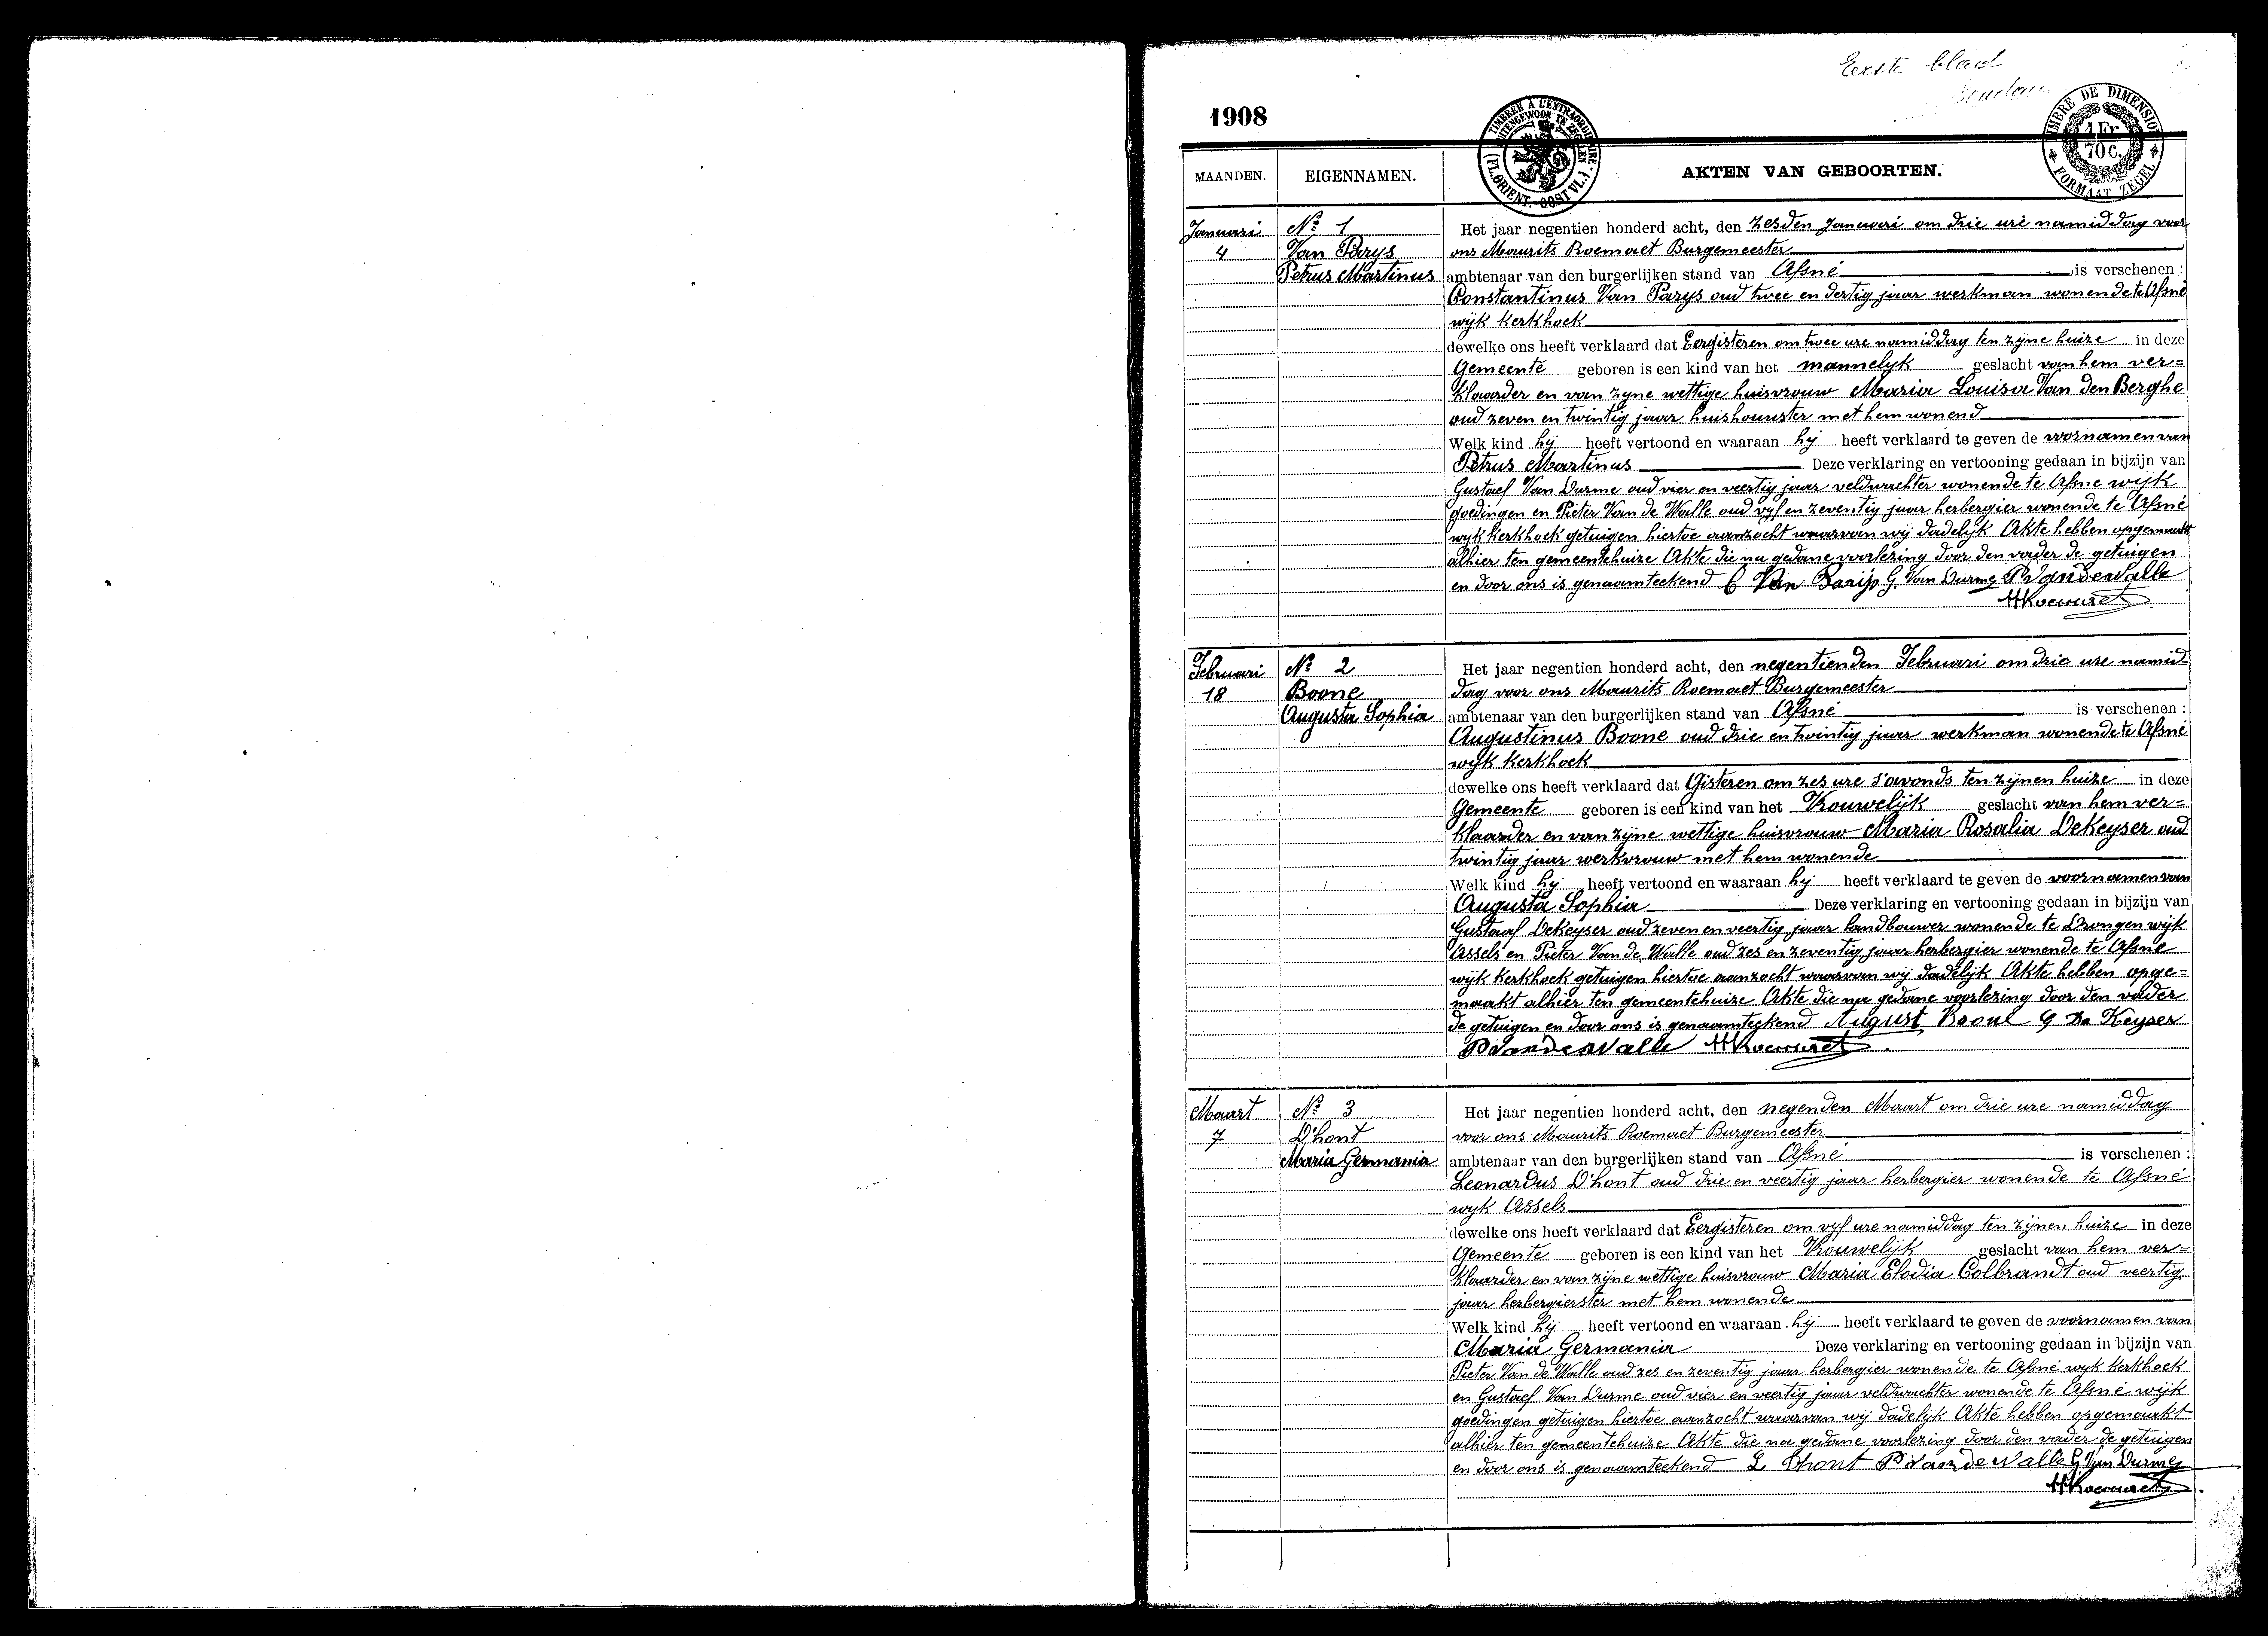 Eerste blad
1908
TIMBRER À L'EXTRAORDINAIRE
BUITENGEWOON TE ZEGELEN
(FL. ORIENT. - OOST VL.)
TIMBRE DE DIMENSION
1 Fr.
70 C.
FORMAAT ZEGEL
MAANDEN. EIGENNAMEN. AKTEN VAN GEBOORTEN.
Januari
4
No 1
Van Parys
Petrus Martinus
Het jaar negentien honderd acht, den zesden Januari om drie ure namiddag voor
ons Maurits Roemaet Burgemeester
ambtenaar van den burgerlijken stand van Afsné is verschenen :
Constantinus Van Parys oud twee en dertig jaar werkman wonende te Afsné
wijk kerkhoek
dewelke ons heeft verklaard dat Eergisteren om twee ure namiddag ten zyne huize in deze
Gemeente geboren is een kind van het mannelyk geslacht van hem ver=
klaarder en van zyne wettige huisvrouw Maria Louisa Van den Berghe
oud zeven en twintig jaar huishoudster met hem wonend
Welk kind hij heeft vertoond en waaraan hij heeft verklaard te geven de voornamen van
Petrus Martinus Deze verklaring en vertooning gedaan in bijzijn van
Gustaef Van Durme oud vier en veertig jaar veldwachter wonende te Afsne wijk
goedingen en Pieter Van de Walle oud vyf en zeventig jaar herbergier wonende te Afsné
wyk kerkhoek getuigen hiertoe aanzocht waarvan wij dadelijk Akte hebben opgemaakt
alhier ten gemeentehuize Akte die na gedane voorlezing door den vader de getuigen
en door ons is genaamteekend C Van Parijs G. Van Durme P VandeWalle
MRoemaet
Februari
18
No 2
Boone
Augusta Sophia
Het jaar negentien honderd acht, den negentienden Februari om drie ure namid=
dag voor ons Maurits Roemaet Burgemeester
ambtenaar van den burgerlijken stand van Afsné is verschenen :
Augustinus Boone oud drie en twintig jaar werkman wonende te Afsné
wijk kerkhoek
dewelke ons heeft verklaard dat Gisteren om zes ure s'avonds ten zijnen huize in deze
Gemeente geboren is een kind van het Vrouwelijk geslacht van hem ver=
klaarder en van zijne wettige huisvrouw Maria Rosalia DeKeyser oud
twintig jaar werkvrouw met hem wonende
Welk kind hij heeft vertoond en waaraan hij heeft verklaard te geven de voornamen van
Augusta Sophia Deze verklaring en vertooning gedaan in bijzijn van
Gustaaf DeKeyser oud zeven en veertig jaar landbouwer wonende te Drongen wijk
Assels en Pieter Van de Walle oud zes en zeventig jaar herbergier wonende te Afsne
wijk kerkhoek getuigen hiertoe aanzocht waarvan wij dadelijk Akte hebben opge=
maakt alhier ten gemeentehuize Akte die na gedane voorlezing door den vader
de getuigen en door ons is genaamteekend August G De Keyser
P VandeWalle MRoemaet
Maart
7
No 3
D'hont
Maria Germania
Het jaar negentien honderd acht, den negenden Maart om drie ure namiddag
voor ons Maurits Roemaet Burgemeester
ambtenaar van den burgerlijken stand van Afsné is verschenen :
Leonardus D'hont oud drie en veertig jaar herbergier wonende te Afsné
wyk Assels
dewelke ons heeft verklaard dat Eergisteren om vyf ure namiddag ten zijnen huize in deze
Gemeente geboren is een kind van het Vrouwelijk geslacht van hem ver=
klaarder en van zijne wettige huisvrouw Maria Elodia Colbrandt oud veertig
jaar herbergierster met hem wonende
Welk kind hij heeft vertoond en waaraan hij heeft verklaard te geven de voornamen van
Maria Germania Deze verklaring en vertooning gedaan in bijzijn van
Pieter Van de Walle oud zes en zeventig jaar herbergier wonende te Afsné wyk kerkhoek
en Gustaef Van Durme oud vier en veertig jaar veldwachter wonende te Afsné wijk
goedingen getuigen hiertoe aanzocht waarvan wij dadelijk Akte hebben opgemaakt
alhier ten gemeentehuize Akte die na gedane voorlezing door den vader de getuigen
en door ons is genaamteekend L Dhont P VandeWalle G. Van Durme
MRoemaet